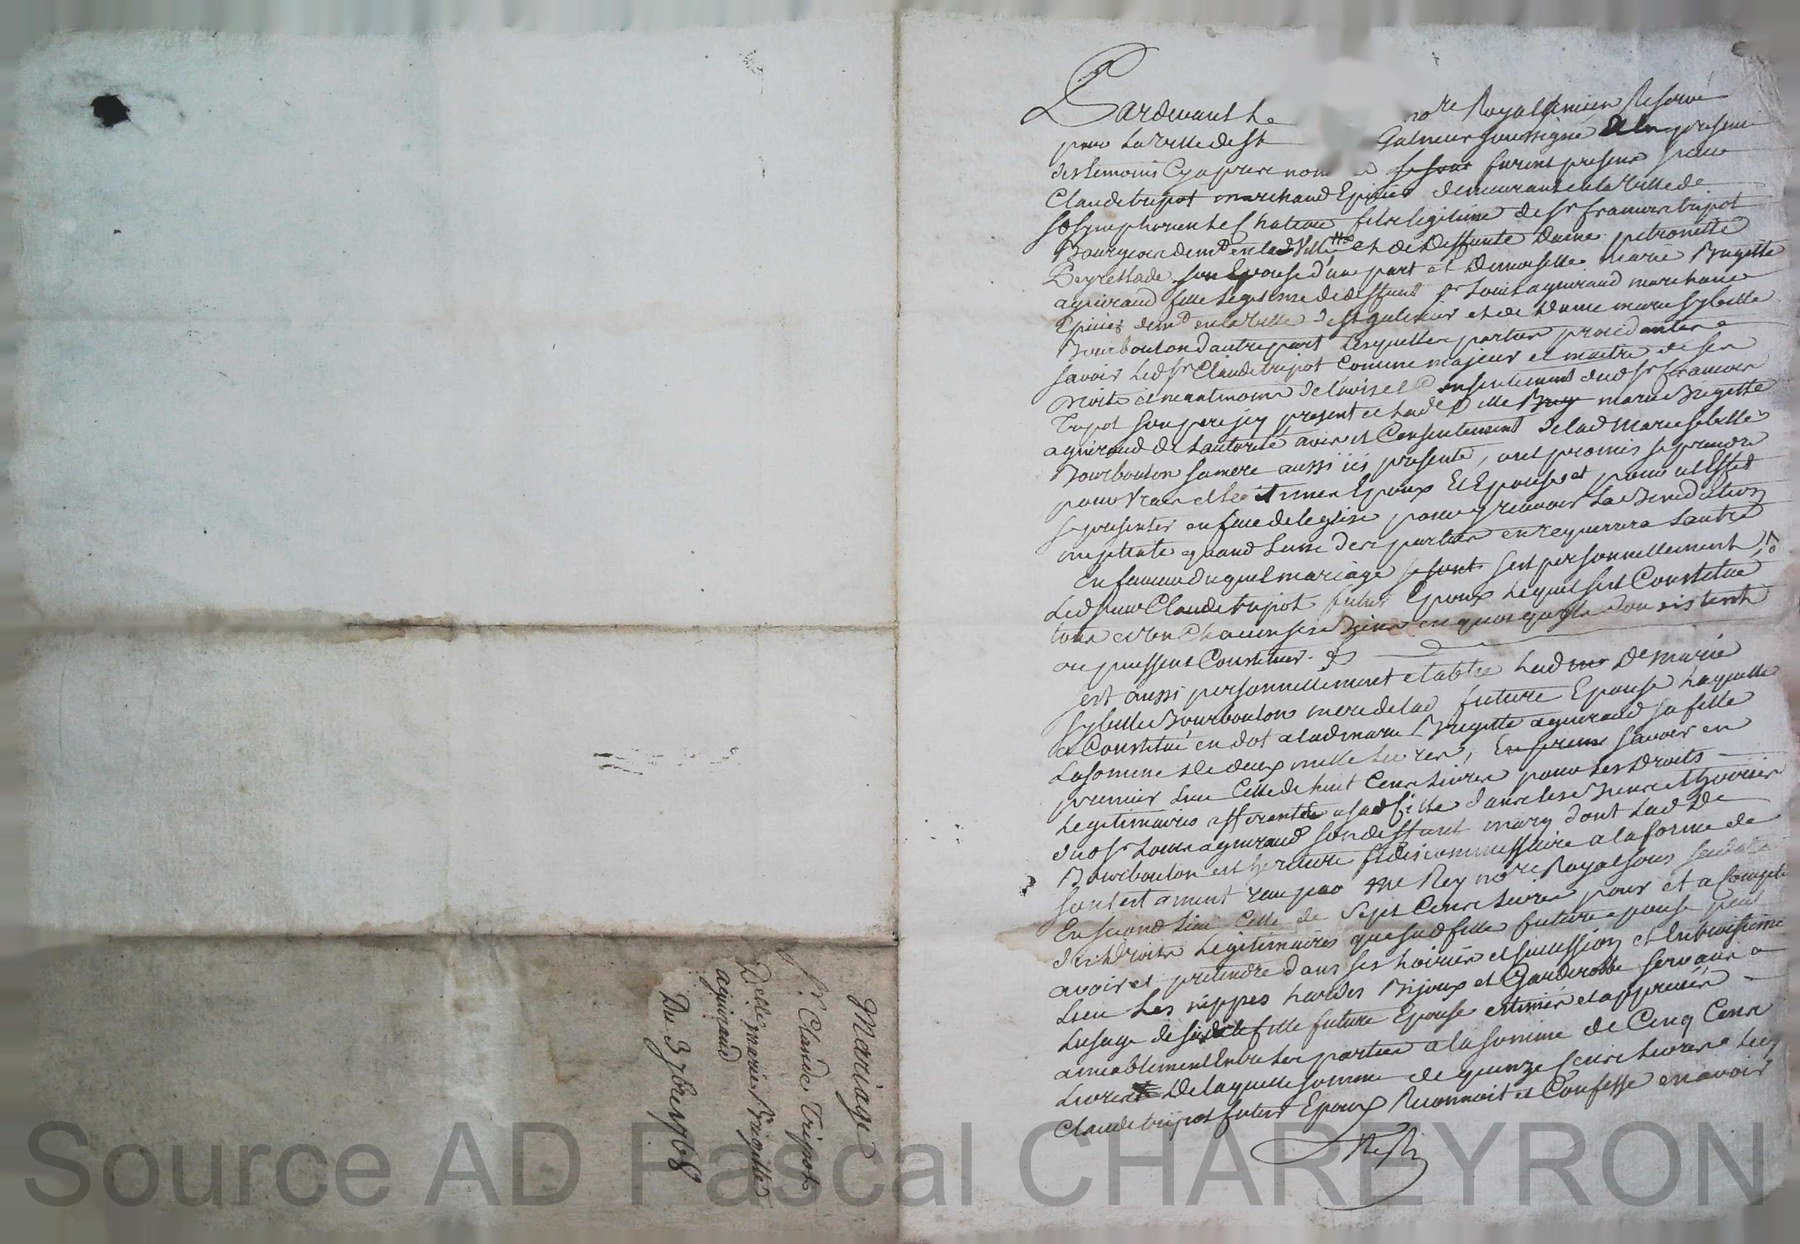 Pardevant Le nore Royal ancien Reservé
pour La Ville de St Galmier soussigné & en presence
des temoins Cy apres nom furent presens sieur
Claude tripot marchand Epicier demeurant en la Ville de
St Symphorien Le Chateau fils legitime de Sr francois tripot
Bourgeois demt en lad Ville et de deffunte Dame petronille
Peyrellade son Epouse d'une part et Demoiselle marie Brigitte
aguiraud fille Legitime de deffunt Sr Louis aguiraud marchand
Epicier demt en la Ville de St galmier et de Dame marie sybille
Bourbouton d'autre part Lesquelles parties procedantes
savoir Led Sr Claude tripot Comme majeur et maitre de ses
droits et neantmoins de l'avis et Consentement dud Sr francois
Tripot son pere icy present et Lad Dlle marie Brigitte
aguiraud de L'autorité avis et Consentement de lad Marie sibille
Bourbouton sa mere aussi ici presente, ont promis se prendre
pour Vrais et Legitimes Epoux et Epouse et pour cet Effet
se presenter en face de l'eglise pour y recevoir La Benediction
nuptiale quand L'une des parties en requerrera L'autre
En faveur duquel mariage s'est personnellement
Led sieur Claude tripot futur Epoux Lequel s'est Constitué
tous et Un Chacuns ses Biens en quoi qu'ils Consistent
ou puissent Consister.
s'est aussi personnellement etablie Lad De Marie
Sybille Bourbouton mere de lad future Epouse Laquelle
a Constitué en dot a lad marie Brigitte aguiraud sa fille
La somme de deux mille Livres, savoir en
premier Lieu Celle de huit Cens Livres pour Les Droits
Legitimaires afferants a sad fille dans les Biens et hoirie
dud Sr Louis aguiraud son deffunt mary dont Lad De
Bourbouton est heritiere fideicommissaire a la forme de
son testament reçu par Me Rey nore Royal sous sa date
En second Lieu Celle de Sept Cens Livres pour et a Compte
des Droits Legitimaires que sad fille future epouse peut
avoir et pretendre dans ses hoirie et succession et En troisieme
Lieu Les nippes hardes Bijoux et Garderobbe servans a
L'usage de sad fille future Epouse estimés et appreciés
ameablement Entre Les parties a la somme de Cinq Cens
Livres De laquelle somme de quinze Cens Livres Led
Claude tripot futur Epoux Reconnoit et Confesse en avoir
Mariage
Sr Claude Tripot
Delle marie Brigitte
aguiraud
Du 3 7bre 1768
Source AD Pascal CHAREYRON